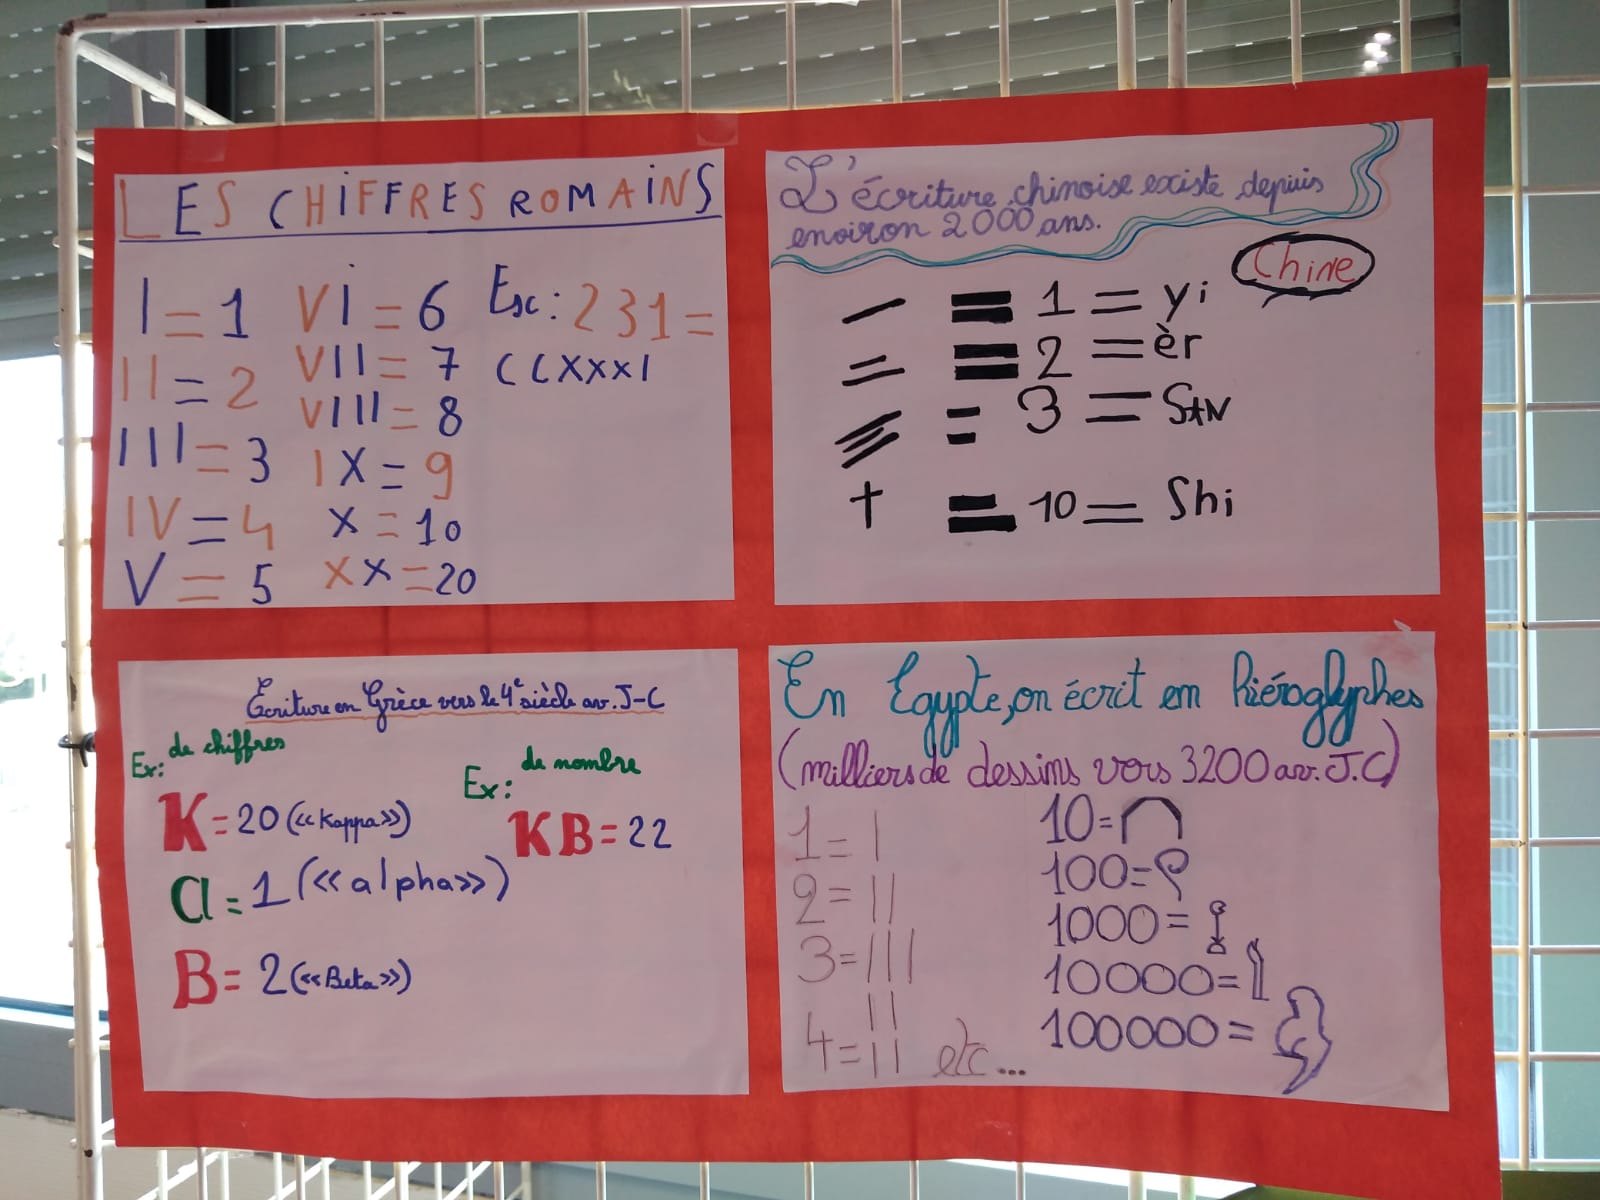 LES CHIFFRES ROMAINS
I = 1
II = 2
III = 3
IV = 4
V = 5
VI = 6
VII = 7
VIII = 8
IX = 9
X = 10
XX = 20
Ex: 231 =
CCXXXI
L'écriture chinoise existe depuis
environ 2000 ans.
Chine
一 = 1 = yi
二 = 2 = èr
三 = 3 = SAN
十 = 10 = Shi
Écriture en Grèce vers le 4e siècle av. J-C
Ex: de chiffres
K = 20 («Kappa»)
a = 1 («alpha»)
B = 2 («Beta»)
Ex: de nombre
KB = 22
En Egypte, on écrit en hiéroglyphes
(milliers de dessins vers 3200 av. J.C)
1 = I
2 = II
3 = III
II
4 = II etc...
10 =
100 =
1000 =
10000 =
100000 =